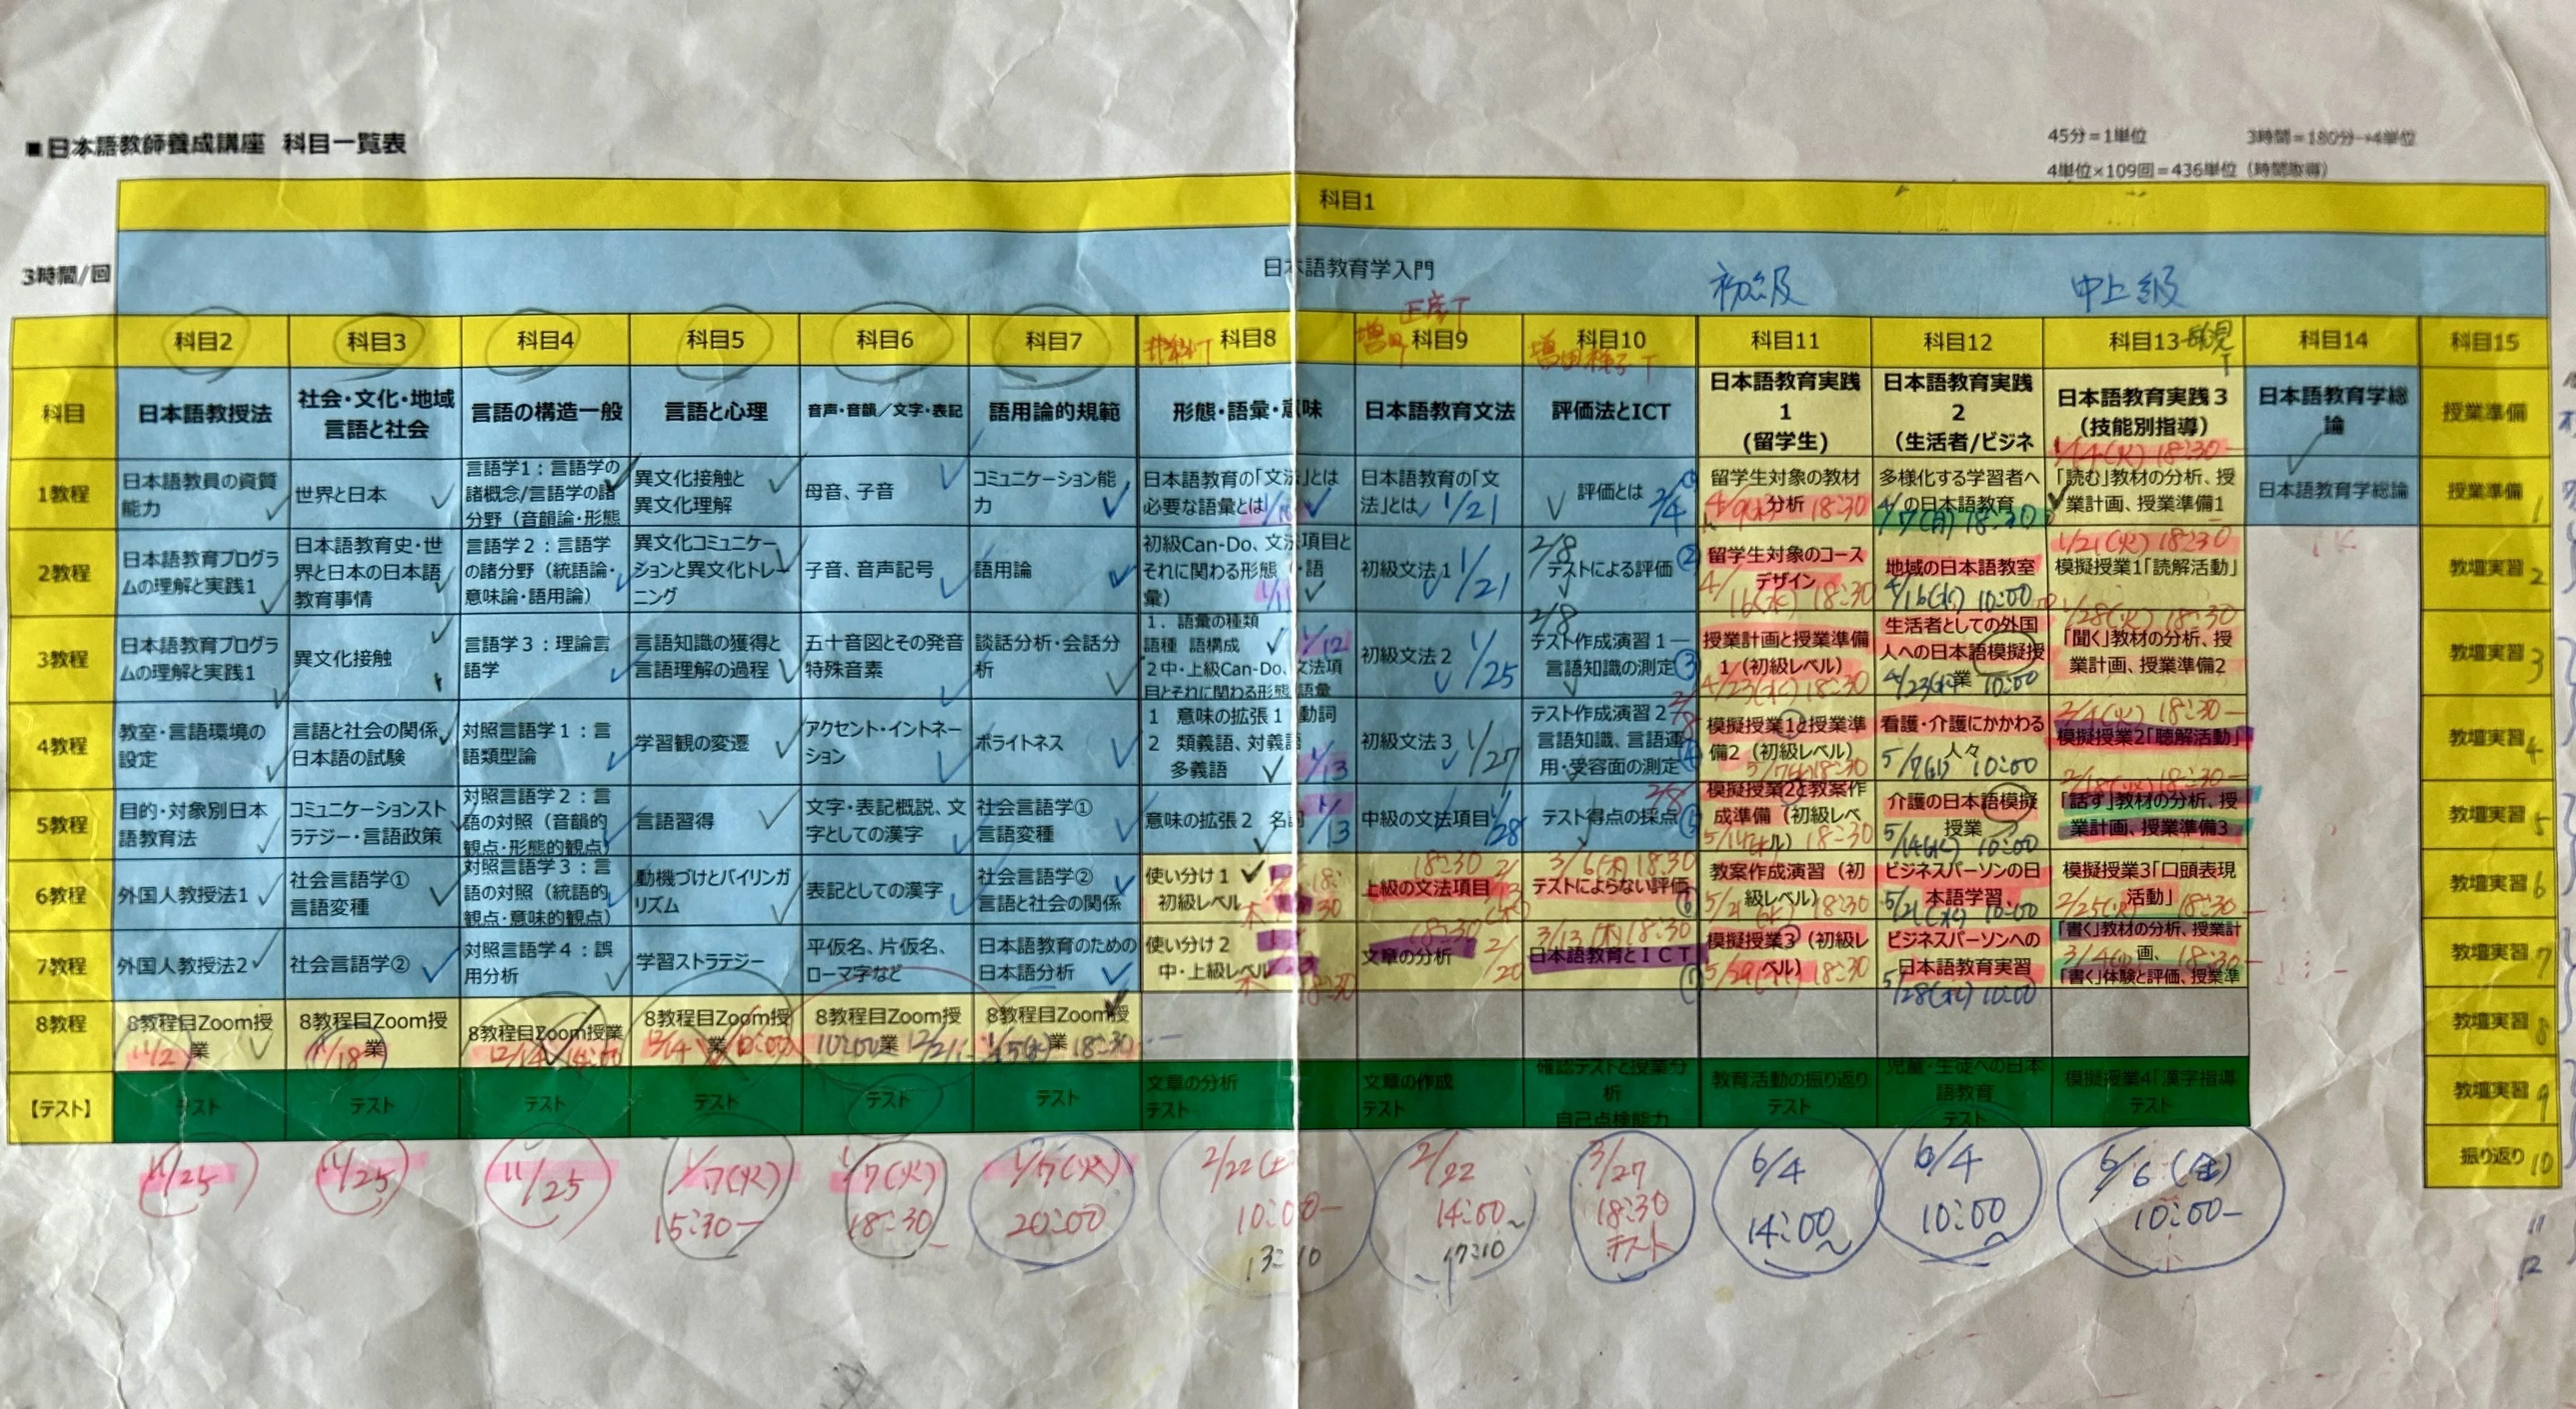 ■日本語教師養成講座 科目一覧表
45分=1単位 3時間=180分→4単位
4単位×109回=436単位（時間取得）
科目1
3時間/回
日本語教育学入門
初級 中上級
科目2 科目3 科目4 科目5 科目6 科目7 科目8 科目9 科目10 科目11 科目12 科目13 科目14 科目15
科目
日本語教授法
社会・文化・地域
言語と社会
言語の構造一般
言語と心理
音声・音韻／文字・表記
語用論的規範
形態・語彙・意味
日本語教育文法
評価法とICT
日本語教育実践
1
(留学生)
日本語教育実践
2
（生活者/ビジネ
日本語教育実践３
(技能別指導)
日本語教育学総
論
授業準備
1教程
日本語教員の資質
能力
世界と日本
言語学1：言語学の
諸概念/言語学の諸
分野（音韻論・形態
異文化接触と
異文化理解
母音、子音
コミュニケーション能
力
日本語教育の「文法」とは
必要な語彙とは
日本語教育の「文
法」とは 1/21
評価とは 2/4
留学生対象の教材
分析
4/9(水) 18:30
多様化する学習者へ
の日本語教育
4/7(月) 18:30
1/14(火) 18:30-
「読む」教材の分析、授
業計画、授業準備1
日本語教育学総論
授業準備 1
2教程
日本語教育プログラ
ムの理解と実践1
日本語教育史・世
界と日本の日本語
教育事情
言語学2：言語学
の諸分野（統語論・
意味論・語用論）
異文化コミュニケー
ションと異文化トレー
ニング
子音、音声記号
語用論
初級Can-Do、文法項目と
それに関わる形態（・語
彙）
初級文法1 1/21
2/8
テストによる評価
留学生対象のコース
デザイン
4/16(水) 18:30
地域の日本語教室
4/16(水) 10:00
1/21(火) 18:30
模擬授業1「読解活動」
教壇実習 2
3教程
日本語教育プログラ
ムの理解と実践1
異文化接触
言語学3：理論言
語学
言語知識の獲得と
言語理解の過程
五十音図とその発音
特殊音素
談話分析・会話分
析
1．語彙の種類
語種 語構成
2中・上級Can-Do、文法項
目とそれに関わる形態 語彙
1/12
初級文法2 1/25
2/8
テスト作成演習1―
言語知識の測定
授業計画と授業準備
1/（初級レベル）
4/23(水) 18:30
生活者としての外国
人への日本語模擬授
業
4/23(水) 10:00
1/28(火) 18:30
「聞く」教材の分析、授
業計画、授業準備2
教壇実習 3
4教程
教室・言語環境の
設定
言語と社会の関係、
日本語の試験
対照言語学1：言
語類型論
学習観の変遷
アクセント・イントネー
ション
ポライトネス
1 意味の拡張1 動詞
2 類義語、対義語
多義語
1/13
初級文法3 1/27
テスト作成演習2
言語知識、言語運
用・受容面の測定
模擬授業1と授業準
備2（初級レベル）
5/7(水) 18:30
看護・介護にかかわる
人々
5/7(水) 10:00
2/4(火) 18:30-
模擬授業2「聴解活動」
教壇実習 4
5教程
目的・対象別日本
語教育法
コミュニケーションスト
ラテジー・言語政策
対照言語学2：言
語の対照（音韻的
観点・形態的観点）
言語習得
文字・表記概説、文
字としての漢字
社会言語学①
言語変種
意味の拡張2 名詞
1/13
中級の文法項目 1/28
テスト得点の採点 2/8
模擬授業2と教案作
成準備（初級レベ
ル）
5/14(水) 18:30
介護の日本語模擬
授業
5/14(水) 10:00
2/18(火) 18:30-
「話す」教材の分析、授
業計画、授業準備3
教壇実習 5
6教程
外国人教授法1
社会言語学①
言語変種
対照言語学3：言
語の対照（統語的
観点・意味的観点）
動機づけとバイリンガ
リズム
表記としての漢字
社会言語学②
言語と社会の関係
使い分け1
初級レベル
18:30
上級の文法項目
3/6(木) 18:30
テストによらない評価
教案作成演習（初
級レベル）
5/21(水) 18:30
ビジネスパーソンの日
本語学習
5/21(水) 10:00
模擬授業3「口頭表現
活動」
2/25(火) 18:30-
教壇実習 6
7教程
外国人教授法2
社会言語学②
対照言語学4：誤
用分析
学習ストラテジー
平仮名、片仮名、
ローマ字など
日本語教育のための
日本語分析
使い分け2
中・上級レベル
18:30
18:30 2/20
文章の分析
3/13(木) 18:30
日本語教育とＩＣＴ
模擬授業3（初級レ
ベル）
5/29 18:30
ビジネスパーソンへの
日本語教育実習
5/28(水) 10:00
「書く」教材の分析、授業計
画、
3/4(火) 18:30-
「書く」体験と評価、授業準
教壇実習 7
8教程
8教程目Zoom授
業
11/2
8教程目Zoom授
業
11/18
8教程目Zoom授業
12/14
8教程目Zoom授
業
8教程目Zoom授
業
10:00 12/21
8教程目Zoom授
業
1/15(水) 18:30-
教壇実習 8
【テスト】
テスト
テスト
テスト
テスト
テスト
テスト
文章の分析
テスト
文章の作成
テスト
確認テストと授業分
析
自己点検能力
教育活動の振り返り
テスト
児童・生徒への日本
語教育
テスト
模擬授業4「漢字指導
テスト
教壇実習 9
振り返り 10
11/25
11/25
11/25
1/7(火)
15:30-
1/7(火)
18:30-
1/7(火)
20:00
2/22(土)
10:00-
13:10
2/22
14:00~
17:10
3/27
18:30
テスト
6/4
14:00~
6/4
10:00~
6/6(金)
10:00-
11
12